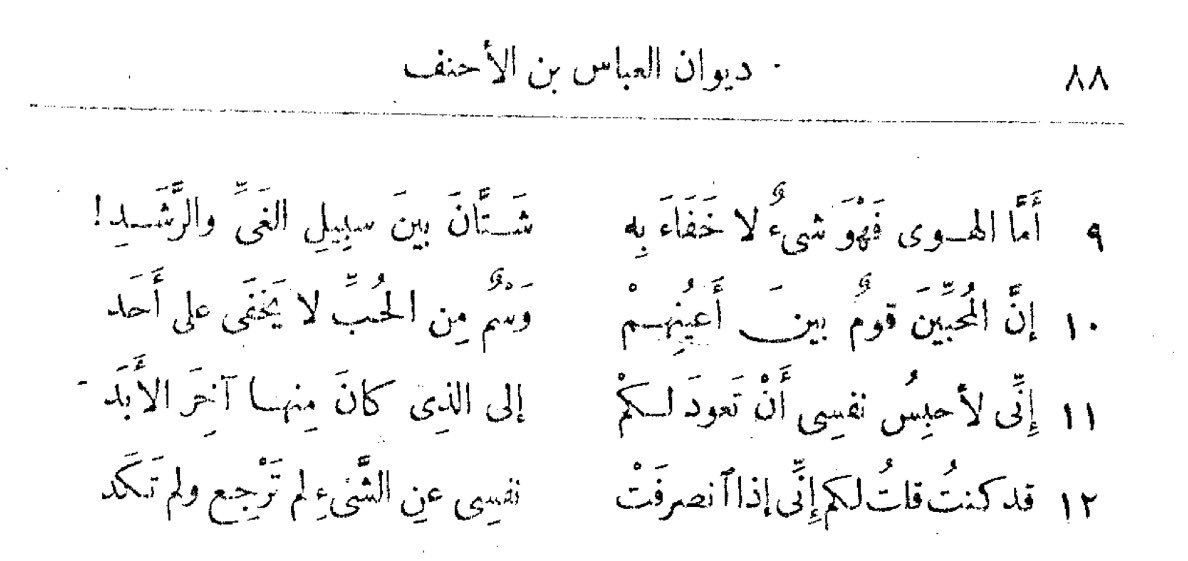 ٨٨ ديوان العباس بن الأحنف
٩ أَمَّا الهـوى فَهْوَ شىءٌ لا خَفَاءَ بِه شَـتَّانَ بينَ سبِيلِ الغَىِّ والرَّشَـدِ!
١٠ إنَّ المُحبِّينَ قومٌ بينَ أَعيُنِهِـمْ وَسْمٌ مِن الحُبِّ لا يَخفَى على أَحَد
١١ إِنِّى لأحبِسُ نفسِى أَنْ تَعودَ لـكمْ إلى الذِى كانَ مِنهـا آخِرَ الأبَد
١٢ قد كنتُ قلتُ لكم إِنِّى إذا ٱنصرفَتْ نفسِى عنِ الشَّىءِ لم تَرْجِع ولم تَكَد